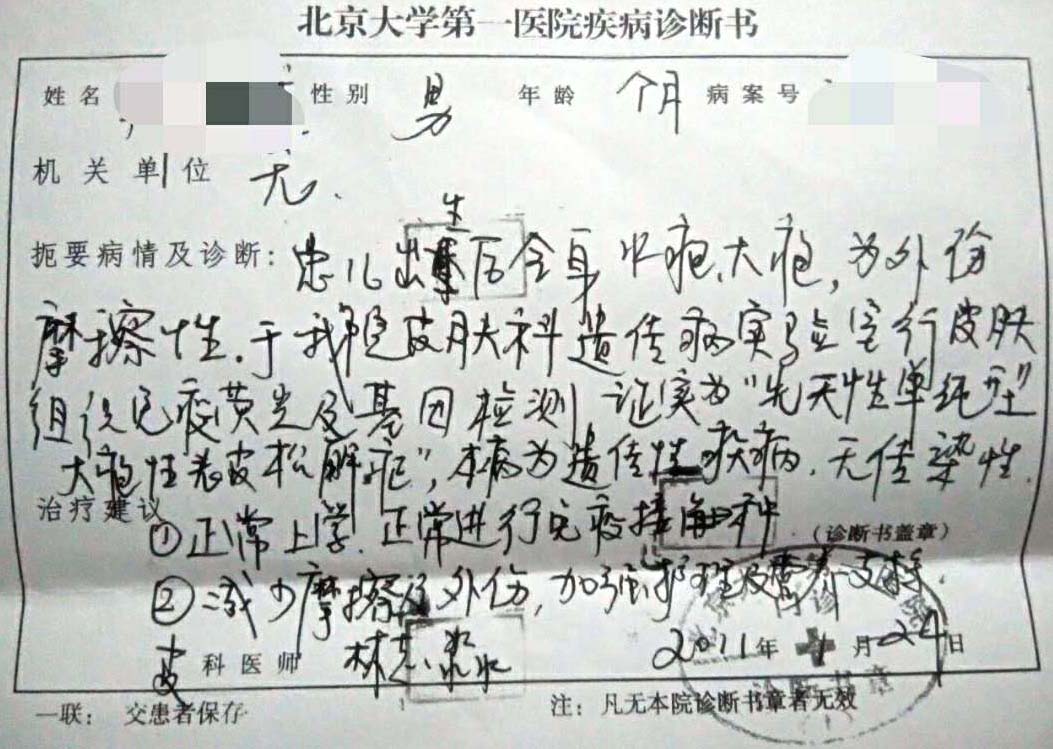 北京大学第一医院疾病诊断书
姓名 性别 男 年龄 个月 病案号
机关单位 无.
扼要病情及诊断: 患儿出生后全身水疱、大疱, 为外伤
摩擦性. 于我院皮肤科遗传病实验室行皮肤
组织免疫荧光及基因检测, 证实为"先天性单纯型"
大疱性表皮松解症", 本病为遗传性疾病. 无传染性.
治疗建议
①正常上学. 正常进行免疫接种
(诊断书盖章)
②减少摩擦及外伤, 加强护理及营养支持.
皮科医师 林志淼 2011年 月24日
一联: 交患者保存 注: 凡无本院诊断书章者无效